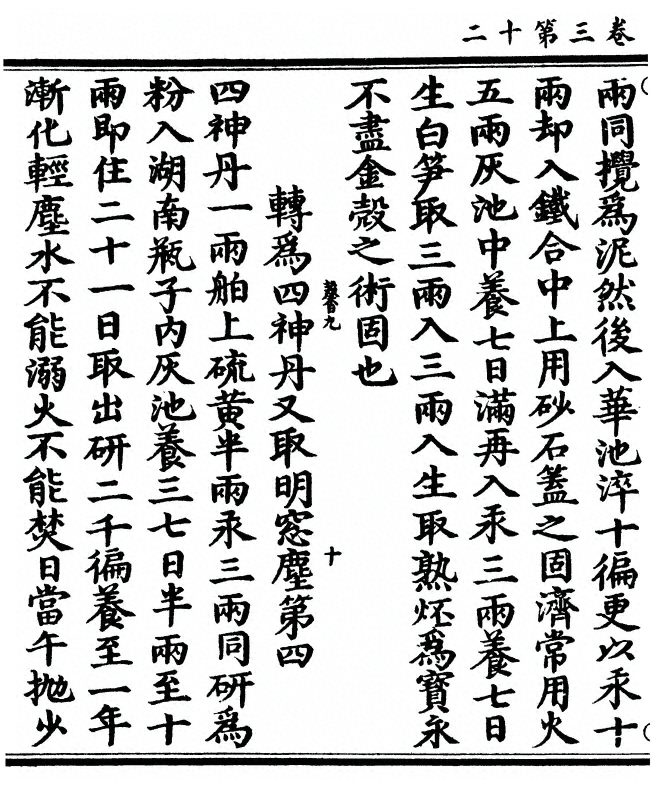 二十第三卷
兩同攪爲泥然後入華池淬十徧更以汞十
兩却入鐵合中上用砂石蓋之固濟常用火
五兩灰池中養七日滿再入汞三兩養七日
生白笋取三兩入三兩入生取熟炼爲寶永
不盡金殼之術固也
轉爲四神丹又取明窓塵第四
四神丹一兩舶上硫黄半兩汞三兩同研爲
粉入湖南瓶子內灰池養三七日半兩至十
兩即住二十一日取出研二千徧養至一年
漸化輕塵水不能溺火不能焚日當午拋少
十